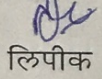 लिपीक